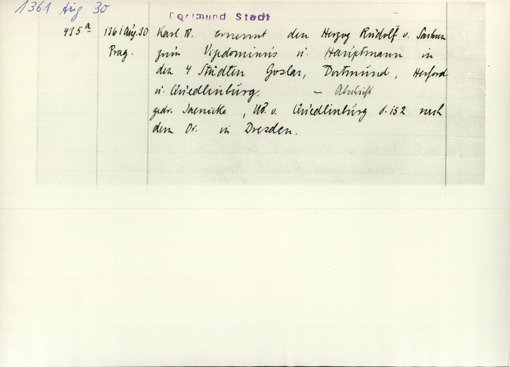 1361 Aug 30
Dortmund Stadt
475a 1361 Aug. 30 Karl IV. ernennt den Herzog Rudolf v. Sachsen
Prag. zum Vizedominus u. Hauptmann in
den 4 Städten Goslar, Dortmund, Herford
u. Quedlinburg. – Abschrift
gedr. Jaenicke, UB. v. Quedlinburg S. 152 nach
dem Or. in Dresden.